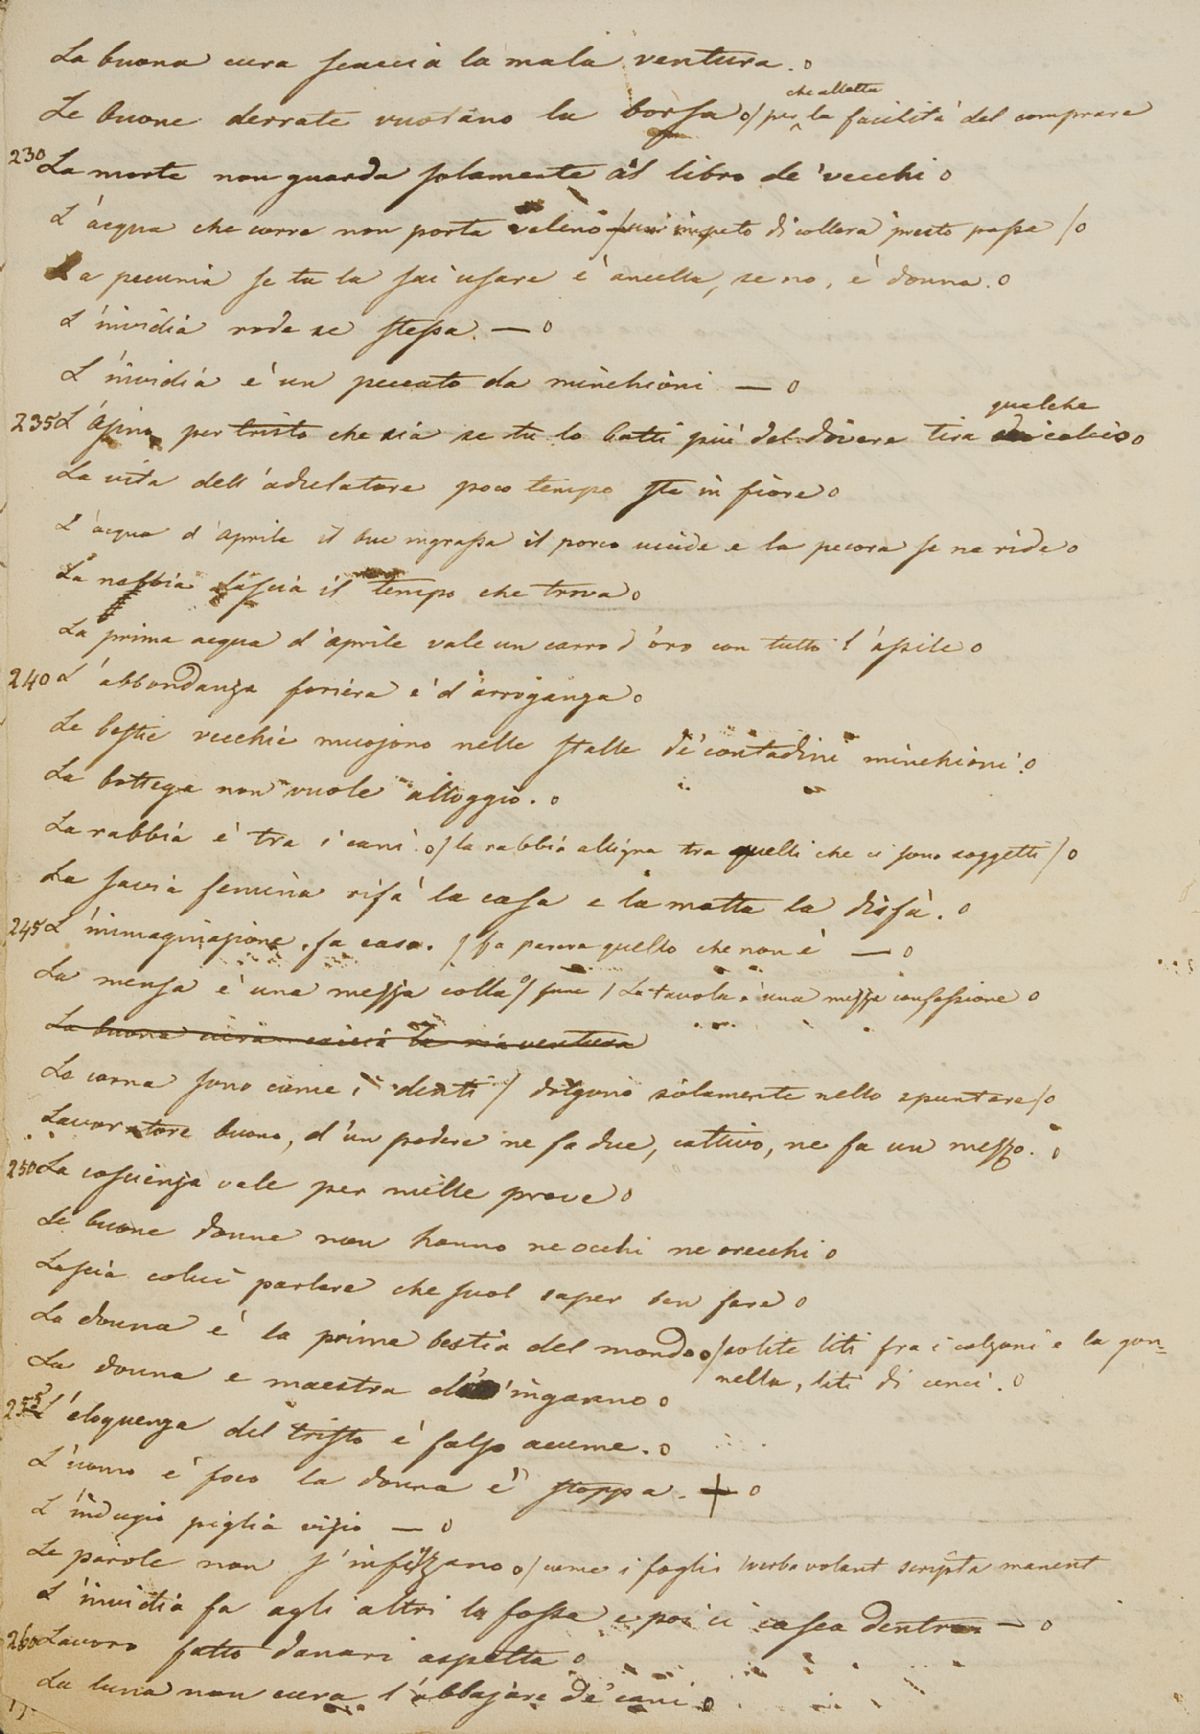 La buona cura scaccia la mala ventura. o
che alletta
Le buone derrate vuotano la borsa o/ per la facilità del comprare
230 La morte non guarda solamente al libro de' vecchi o
L'acqua che corre non porta veleno / impeto di collera presto passa / o
La pecunia se tu la sai usare è ancella, se no, è donna. o
L'invidia rode se stessa. — o
L'invidia è un peccato da minchioni — o
qualche
235 L'asino per tristo che sia se tu lo batti più del dovere tira calcio o
La vita dell'adulatore poco tempo sta in fiore o
L'acqua d'aprile il bue ingrassa il porco uccide e la pecora se ne ride o
La nebbia lascia il tempo che trova o
La prima acqua d'aprile vale un carro d'oro con tutto l'assile o
240 L'abbondanza foriera è d'arroganza o
Le bestie vecchie muojono nelle stalle de' contadini minchioni. o
La bottega non vuole alloggio. o
La rabbia è tra i cani o/ la rabbia alligna tra quelli che ci sono soggetti / o
La savia femina rifà la casa e la matta la disfà. o
245 L'immaginazione fa caso. / fa parere quello che non è — o
La mensa è una mezza colla o/ fune / La tavola è una mezza confessione o
La buona cura caccia la ria ventura
Le corna sono come i denti / dolgono solamente nello spuntare / o
Lavoratore buono, d'un podere ne fa due, cattivo, ne fa un mezzo. o
250 La coscienza vale per mille prove o
Le buone donne non hanno ne occhi ne orecchi o
Lascia colui parlare che suol saper ben fare o
La donna è la prima bestia del mondo o/ solite liti fra i calzoni e la gon=
nella, liti di cenci. o
La donna e maestra d'inganno o
255 L'eloquenza del tristo è falso acume. o
L'uomo è foco la donna è stoppa. + o
L'indugio piglia vizio — o
Le parole non s'infilzano o/ come i fogli / verba volant scripta manent
L'invidia fa agli altri la fossa e poi ci casca dentro — o
260 Lavoro fatto danari aspetta o
La luna non cura l'abbajare de' cani o